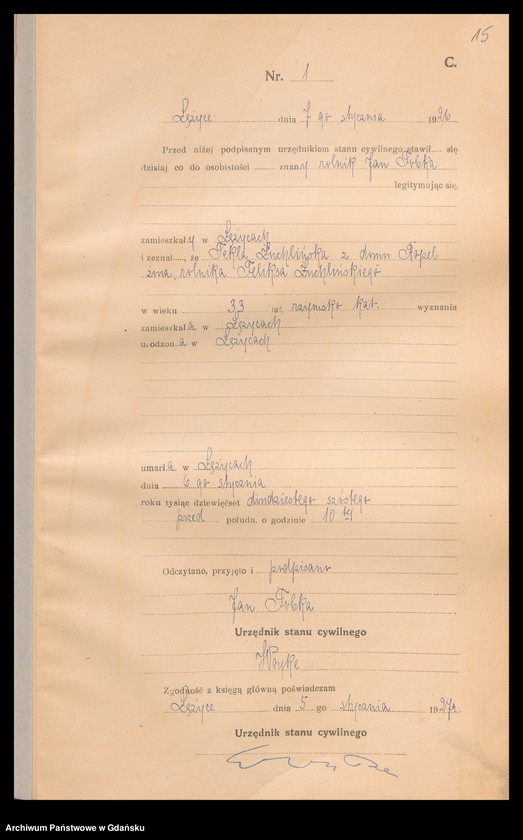 15
C.
Nr. 1
Łężyce dnia 7 go stycznia 1926
Przed niżej podpisanym urzędnikiem stanu cywilnego stawił się
dzisiaj co do osobistości znany rolnik Jan Tobka
legitymując się,
zamieszkały w Łężycach
i zeznał, że Tekla Zuchlińska z domu Ropel
żona rolnika Feliksa Zuchlińskiego
w wieku 33 lat rzymsko kat. wyznania
zamieszkała w Łężycach
urodzona w Łężycach
umarła w Łężycach
dnia 6 go stycznia
roku tysiąc dziewięćset dwudziestego szóstego
przed połudn. o godzinie 10 tej
Odczytano, przyjęto i podpisano
Jan Tobka
Urzędnik stanu cywilnego
Woyke
Zgodność z księgą główną poświadczam
Łężyce dnia 5 go stycznia 1927r
Urzędnik stanu cywilnego
Archiwum Państwowe w Gdańsku